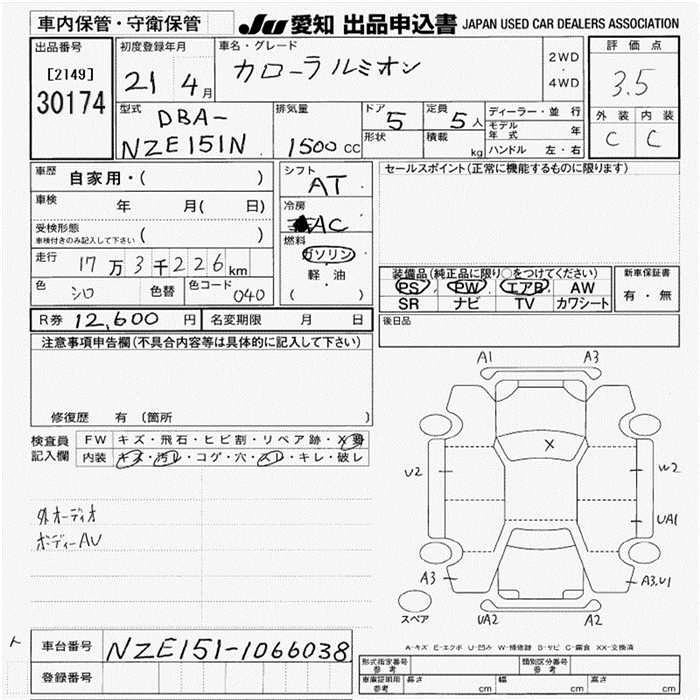 車内保管・守衛保管
JU 愛知 出品申込書 JAPAN USED CAR DEALERS ASSOCIATION
出品番号
[2149]
30174
初度登録年月
21 4月
車名・グレード
カローラルミオン
2WD
・
4WD
評価点
3.5
外装 内装
C C
型式
DBA-
NZE151N
排気量
1500 CC
ドア 5
形状
定員 5人
積載 kg
ディーラー・並行
モデル年式 年
ハンドル 左・右
車歴 自家用・( )
車検 年 月( 日)
受検形態
車検付きのみ記入して下さい ( )
走行 17万3千226km
色 シロ 色替 色コード 040
シフト
AT
冷房
AC
燃料
ガソリン
軽油
( )
セールスポイント(正常に機能するものに限ります)
装備品(純正品に限り○をつけてください)
PS PW エアB AW
SR ナビ TV カワシート
新車保証書
有・無
R券 12,600円 名変期限 月 日
後日品
注意事項申告欄(不具合内容等は具体的に記入して下さい)
修復歴 有 (箇所 )
検査員
記入欄
FW キズ・飛石・ヒビ割・リペア跡・X要
内装 キズ・汚レ・コゲ・穴・スレ・キレ・破レ
外オーディオ
ボディーAU
A1 A3
X
U2
W2
UA1
A3
A3.U1
スペア
UA2 A2
A-キズ E-エクボ U-凹み W-補修跡 B-サビ C-腐食 XX-交換済
車台番号 NZE151-1066038
登録番号
型式指定番号
参考
類別区分番号
参考
車庫証明用
参考
長さ cm 幅 cm 高さ cm